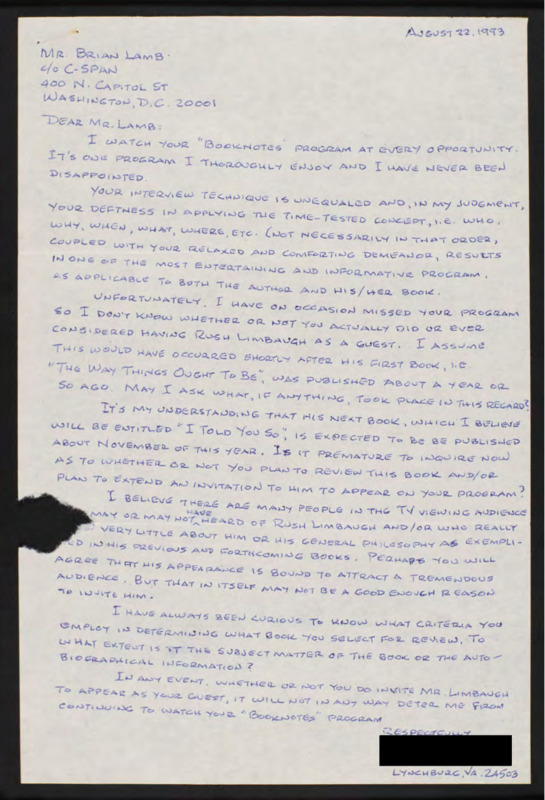 AUGUST 22, 1993
MR. BRIAN LAMB
c/o C-SPAN
400 N. CAPITOL ST
WASHINGTON, D.C. 20001
DEAR MR. LAMB:
I WATCH YOUR "BOOKNOTES" PROGRAM AT EVERY OPPORTUNITY.
IT'S ONE PROGRAM I THOROUGHLY ENJOY AND I HAVE NEVER BEEN
DISAPPOINTED.
YOUR INTERVIEW TECHNIQUE IS UNEQUALED AND, IN MY JUDGMENT,
YOUR DEFTNESS IN APPLYING THE TIME-TESTED CONCEPT, I.E. WHO,
WHY, WHEN, WHAT, WHERE, ETC. (NOT NECESSARILY IN THAT ORDER,
COUPLED WITH YOUR RELAXED AND COMFORTING DEMEANOR, RESULTS
IN ONE OF THE MOST ENTERTAINING AND INFORMATIVE PROGRAM,
AS APPLICABLE TO BOTH THE AUTHOR AND HIS/HER BOOK.
UNFORTUNATELY, I HAVE ON OCCASION MISSED YOUR PROGRAM
SO I DON'T KNOW WHETHER OR NOT YOU ACTUALLY DID OR EVER
CONSIDERED HAVING RUSH LIMBAUGH AS A GUEST. I ASSUME
THIS WOULD HAVE OCCURRED SHORTLY AFTER HIS FIRST BOOK, I.E.
"THE WAY THINGS OUGHT TO BE", WAS PUBLISHED ABOUT A YEAR OR
SO AGO. MAY I ASK WHAT, IF ANYTHING, TOOK PLACE IN THIS REGARD?
IT'S MY UNDERSTANDING THAT HIS NEXT BOOK, WHICH I BELIEVE
WILL BE ENTITLED "I TOLD YOU SO", IS EXPECTED TO BE BE PUBLISHED
ABOUT NOVEMBER OF THIS YEAR. IS IT PREMATURE TO INQUIRE NOW
AS TO WHETHER OR NOT YOU PLAN TO REVIEW THIS BOOK AND/OR
PLAN TO EXTEND AN INVITATION TO HIM TO APPEAR ON YOUR PROGRAM?
I BELIEVE THERE ARE MANY PEOPLE IN THE TV VIEWING AUDIENCE
MAY OR MAY NOT HAVE HEARD OF RUSH LIMBAUGH AND/OR WHO REALLY
VERY LITTLE ABOUT HIM OR HIS GENERAL PHILOSOPHY AS EXEMPLI-
ED IN HIS PREVIOUS AND FORTHCOMING BOOKS. PERHAPS YOU WILL
AGREE THAT HIS APPEARANCE IS BOUND TO ATTRACT A TREMENDOUS
AUDIENCE. BUT THAT IN ITSELF MAY NOT BE A GOOD ENOUGH REASON
TO INVITE HIM.
I HAVE ALWAYS BEEN CURIOUS TO KNOW WHAT CRITERIA YOU
EMPLOY IN DETERMINING WHAT BOOK YOU SELECT FOR REVIEW. TO
WHAT EXTENT IS IT THE SUBJECT MATTER OF THE BOOK OR THE AUTO-
BIOGRAPHICIAL INFORMATION?
IN ANY EVENT, WHETHER OR NOT YOU DO INVITE MR. LIMBAUGH
TO APPEAR AS YOUR GUEST, IT WILL NOT IN ANY WAY DETER ME FROM
CONTINUING TO WATCH YOUR "BOOKNOTES" PROGRAM
RESPECTFULLY
LYNCHBURG, VA. 24503